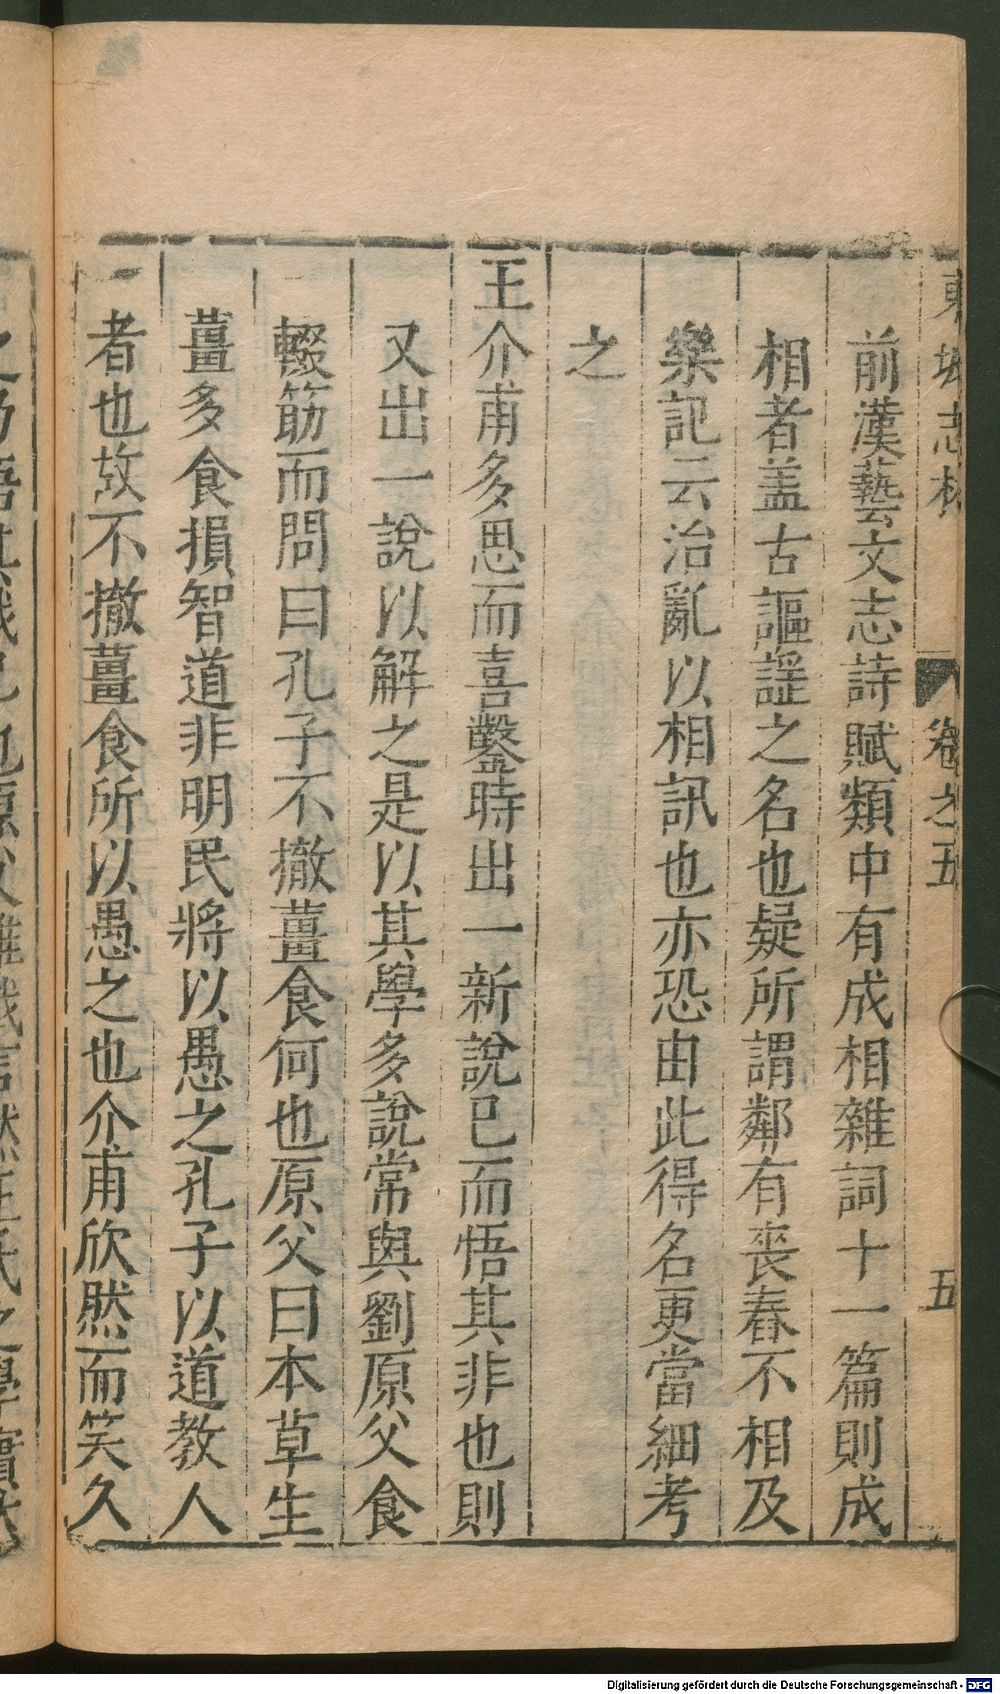 東坡志林 卷之五 五
前漢藝文志詩賦類中有成相雜詞十一篇則成
相者盖古謳謡之名也疑所謂鄰有喪舂不相及
樂記云治亂以相訊也亦恐由此得名更當細考
之
王介甫多思而喜鑿時出一新說已而悟其非也則
又出一說以解之是以其學多說常與劉原父食
輟筯而問曰孔子不撤薑食何也原父曰本草生
薑多食損智道非明民將以愚之孔子以道教人
者也故不撤薑食所以愚之也介甫欣然而笑久
之乃悟其戲己也原父雖戲言然王氏之學實
Digitalisierung gefördert durch die Deutsche Forschungsgemeinschaft - DFG